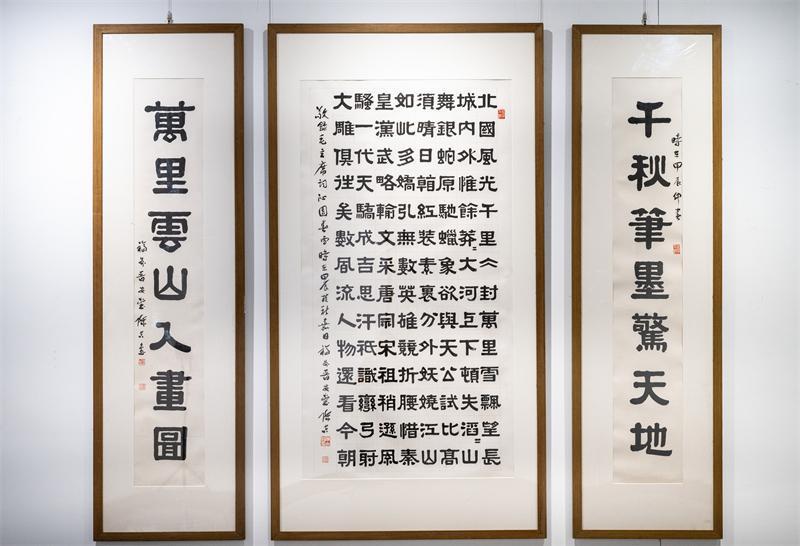 千秋筆墨驚天地
時在甲辰仲春
北國風光千里冰封萬里雪飄望長
城內外惟餘莽〻大河上下頓失滔〻山
舞銀蛇原馳蠟象欲與天公試比高
須晴日看紅裝素裹分外妖嬈江山
如此多嬌引無數英雄競折腰惜秦
皇漢武略輸文采唐宗宋祖稍遜風
騷一代天驕成吉思汗祇識彎弓射
大雕俱往矣數風流人物還看今朝
敬錄毛主席詞沁園春雪時在甲辰嘉日
萬里雲山入畫圖